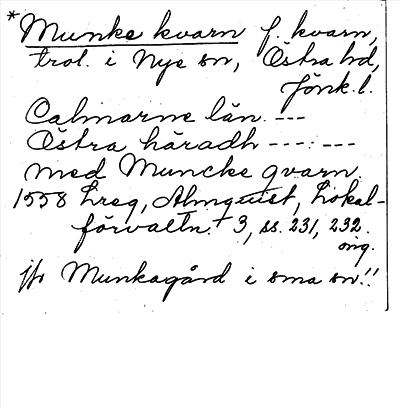 *Munke kvarn f. kvarn,
trol. i Nye sn, Östra hd,
Jönk. l.
Calmarne län. ---
Östra häradh ---:---
med Muncke qvarn.
1558 Lreg, Almquist, Lokal-
förvaltn. 3, ss. 231, 232.
orig.
jfr Munkagård i sma sn!!